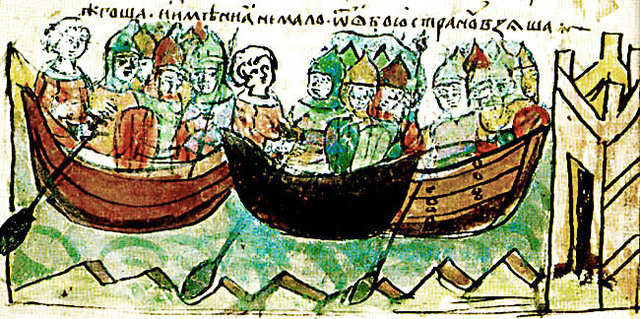 жгоша · и имѣниꙗ немало · ѿ обою странꙋ взѧша